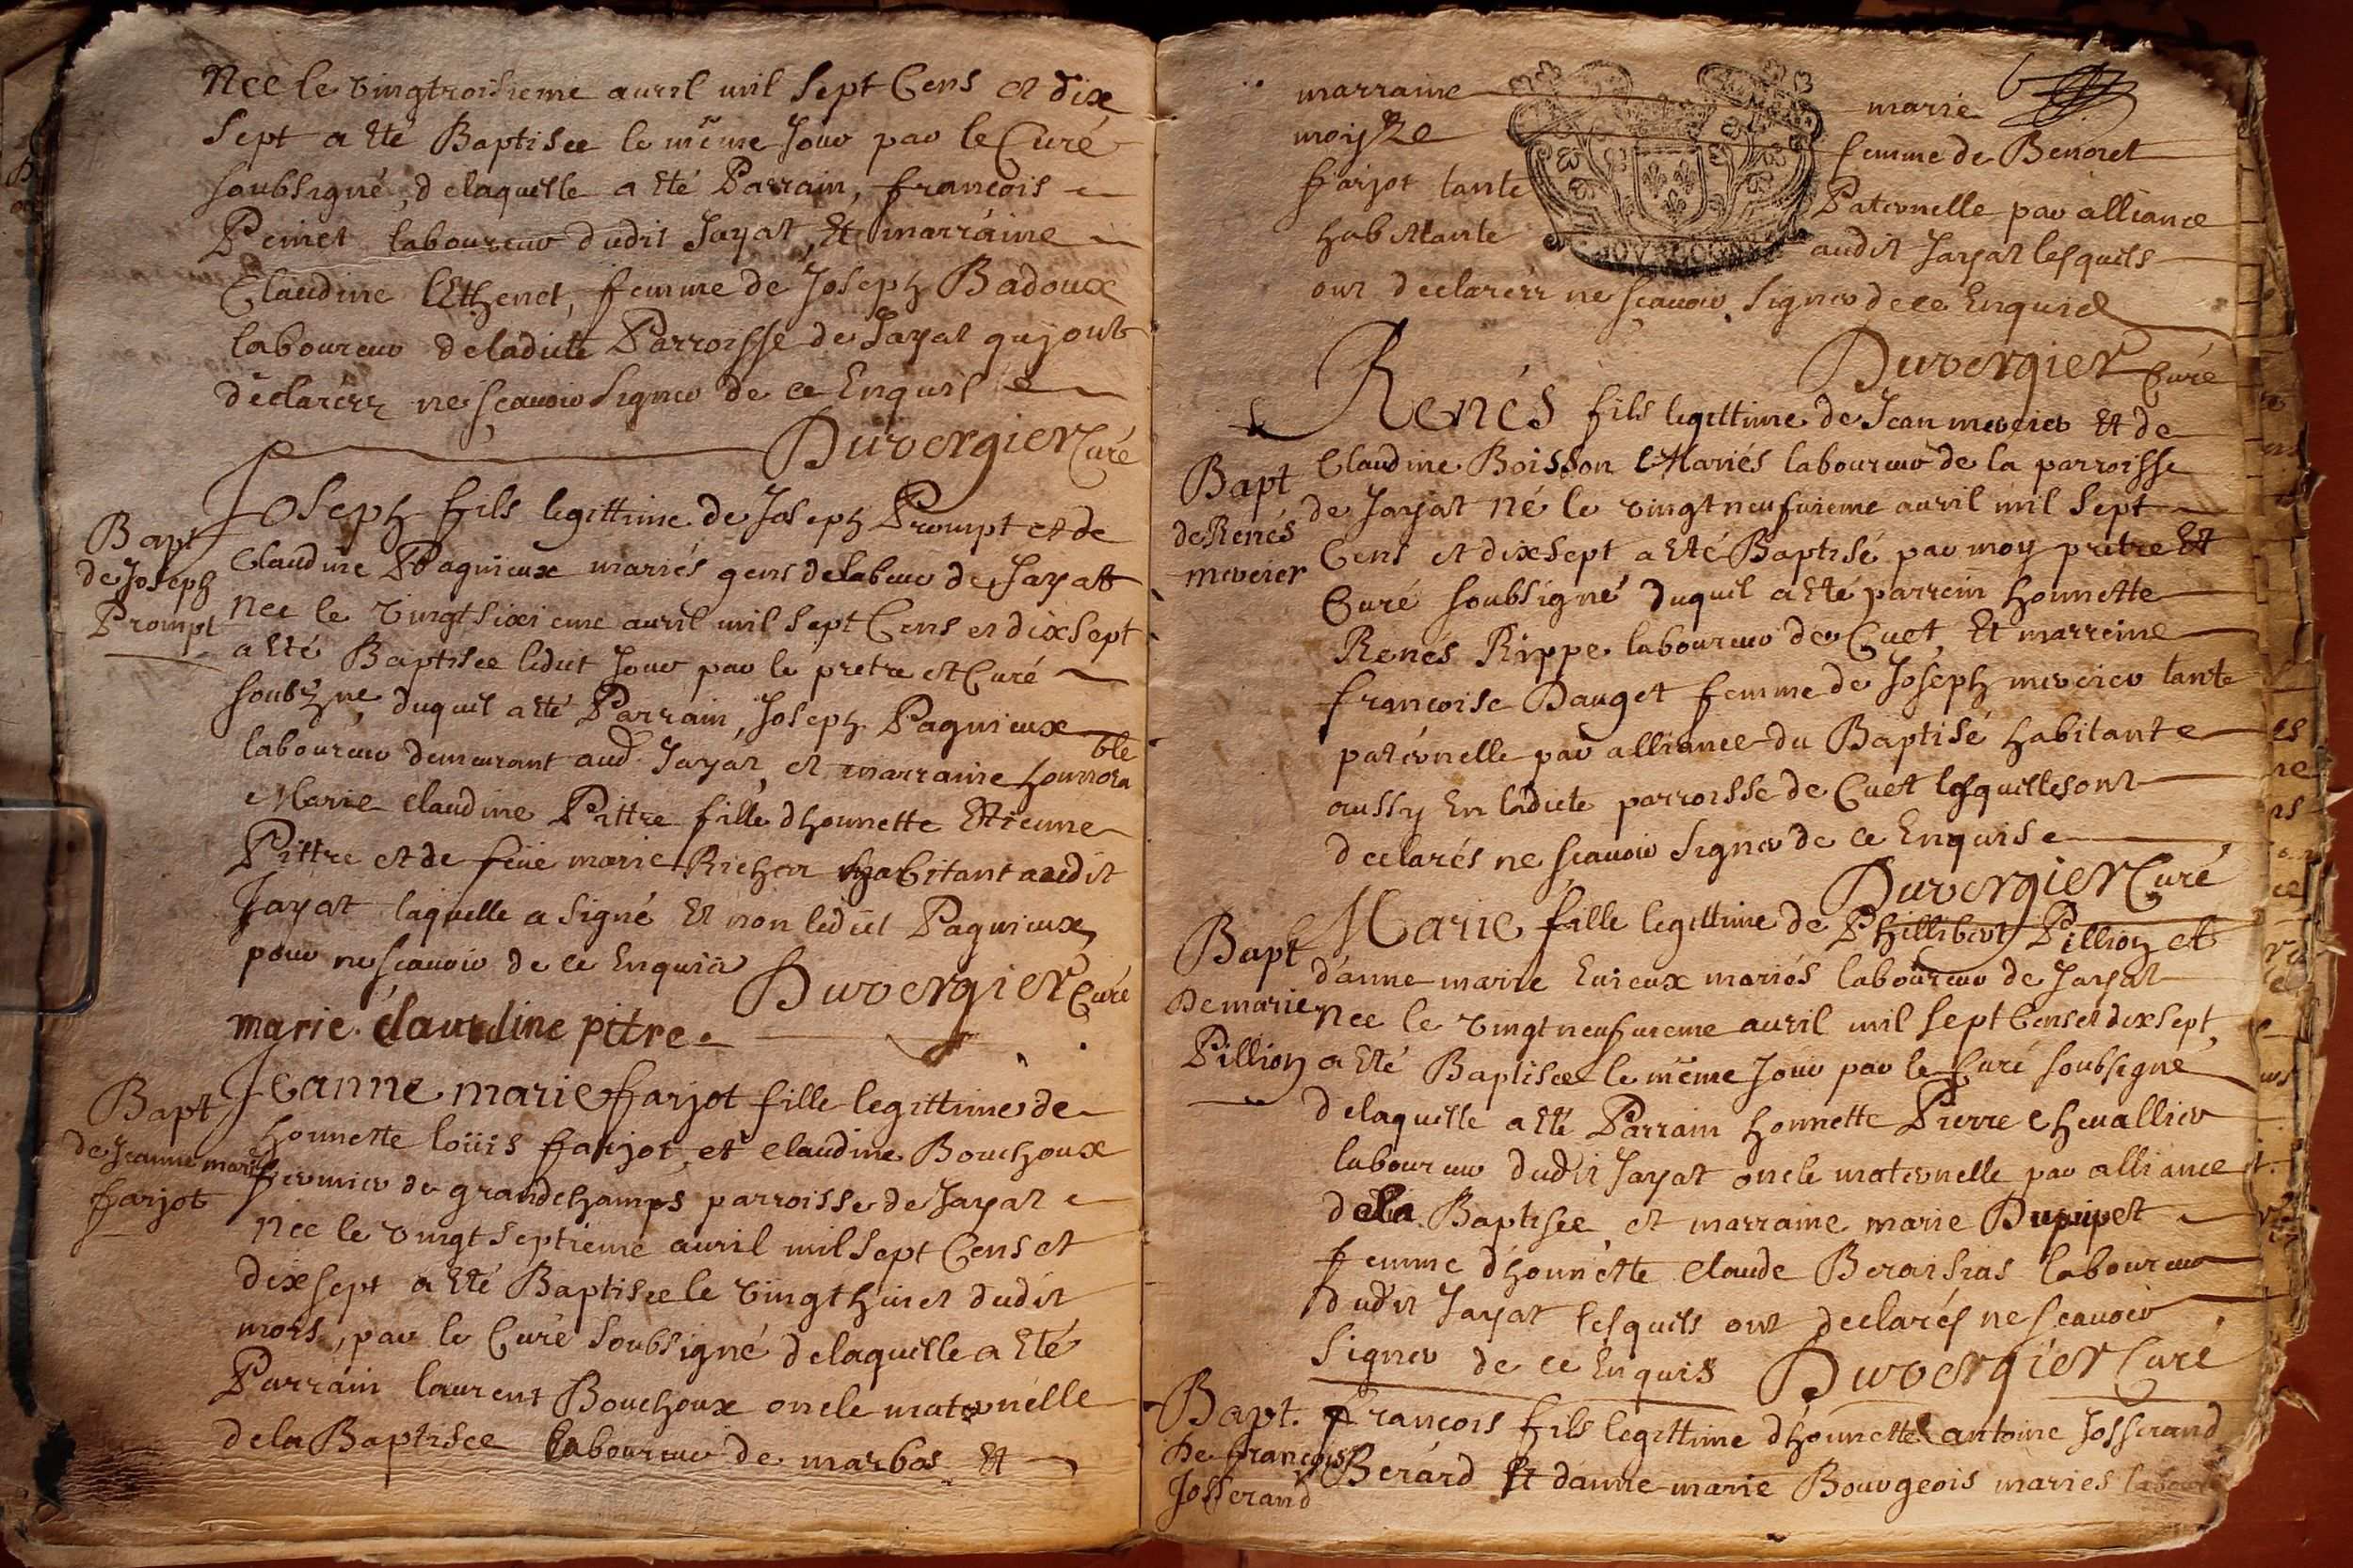 Nee le vingtroisieme auril mil sept Cens et dix
sept a êté Baptisee le même Jour par le Curé
soubsigné, delaquelle a êté Parrain, françois
Peinet laboureur dudit Jayat, Et marraine
Claudine Ethenet, femme de Joseph Badoux
laboureur deladitte Parroisse de Jayat quj ont
déclarérz ne sçauoir signer de ce Enquis
Duvergier Curé
Bapt
de Joseph
Prompt
Joseph fils legittime de Joseph Prompt et de
Claudine Pagnieux mariés gens delabeur de Jayat
nee le vingt sixieme auril mil sept Cens et dix sept
a êté Baptisee ledit Jour par le pretre et Curé
soubzne, duquel a êté Parrain, Joseph Pagnieux
laboureur demeurant aud. Jayat, et marraine honnora ble
Marie claudine Pittre fille dhonnette Etienne
Pittre et de feüe marie Richer habitant audit
Jayat laquelle a signé Et non ledit Pagnieux
pour ne sçauoir de ce Enquis
Duvergier Curé
marie. claudine pitre.
Bapt
de Jeanne marie
farjot
Jeanne marie farjot fille legittime de
honnette loüis farjot, et claudine Bouchoux
fermier de grandchamps parroisse de Jayat
nee le vingt septieme auril mil sept Cens et
dix sept a êté Baptisee le vingt huict dudit
mois, par le Curé soubsigné delaquelle a êté
Parrain laurent Bouchoux oncle maternelle
dela Baptisee laboureur de marbos Et
6
marraine marie
moiyze femme de Benoiet
farjot tante Paternelle par alliance
habittante audit Jayat lesquels
ont declarérz ne sçauoir signer de ce Enquis
Duvergier Curé
Bapt
de Renés
mercier
Renés fils legittime de Jean mercier Et de
Claudine Boisson Mariés laboureur de la parroisse
de Jayat né le vingt neufuieme auril mil sept
Cens et dix sept a êté Baptisé par moy pretre Et
Curé soubsigné duquel a êté parrein honnette
Renés Rippe laboureur de Cuet, Et marreine
françoise Dauget femme de Joseph mercier tante
paternelle par alliance du Baptisé habitante
aussy En laditte parroisse de Cuet lesquelles ont
declarés ne sçauoir signer de ce Enquise
Duvergier Curé
Bapt
De marie
Pillion
Marie fille legittime de Phillibert Pillion et
d'anne marie Euieux mariés laboureur de Jayat
nee le vingt neufuieme auril mil sept Cens et dix sept,
a êté Baptisee le même Jour par le Curé soubsigné
delaquelle a êté Parrain honnette Pierre Cheuallier
laboureur dudit Jayat oncle maternelle par alliance
dela Baptisee, et marraine marie Dupupet
femme d'honnette claude Beraisias laboureur
dudit Jayat lesquels ont declarés ne sçauoir
signer de ce Enquis
Duvergier Curé
Bapt.
De françois
Josserand
françois fils legittime dhonnette antoine Josserand
Berard Et danne marie Bourgeois maries